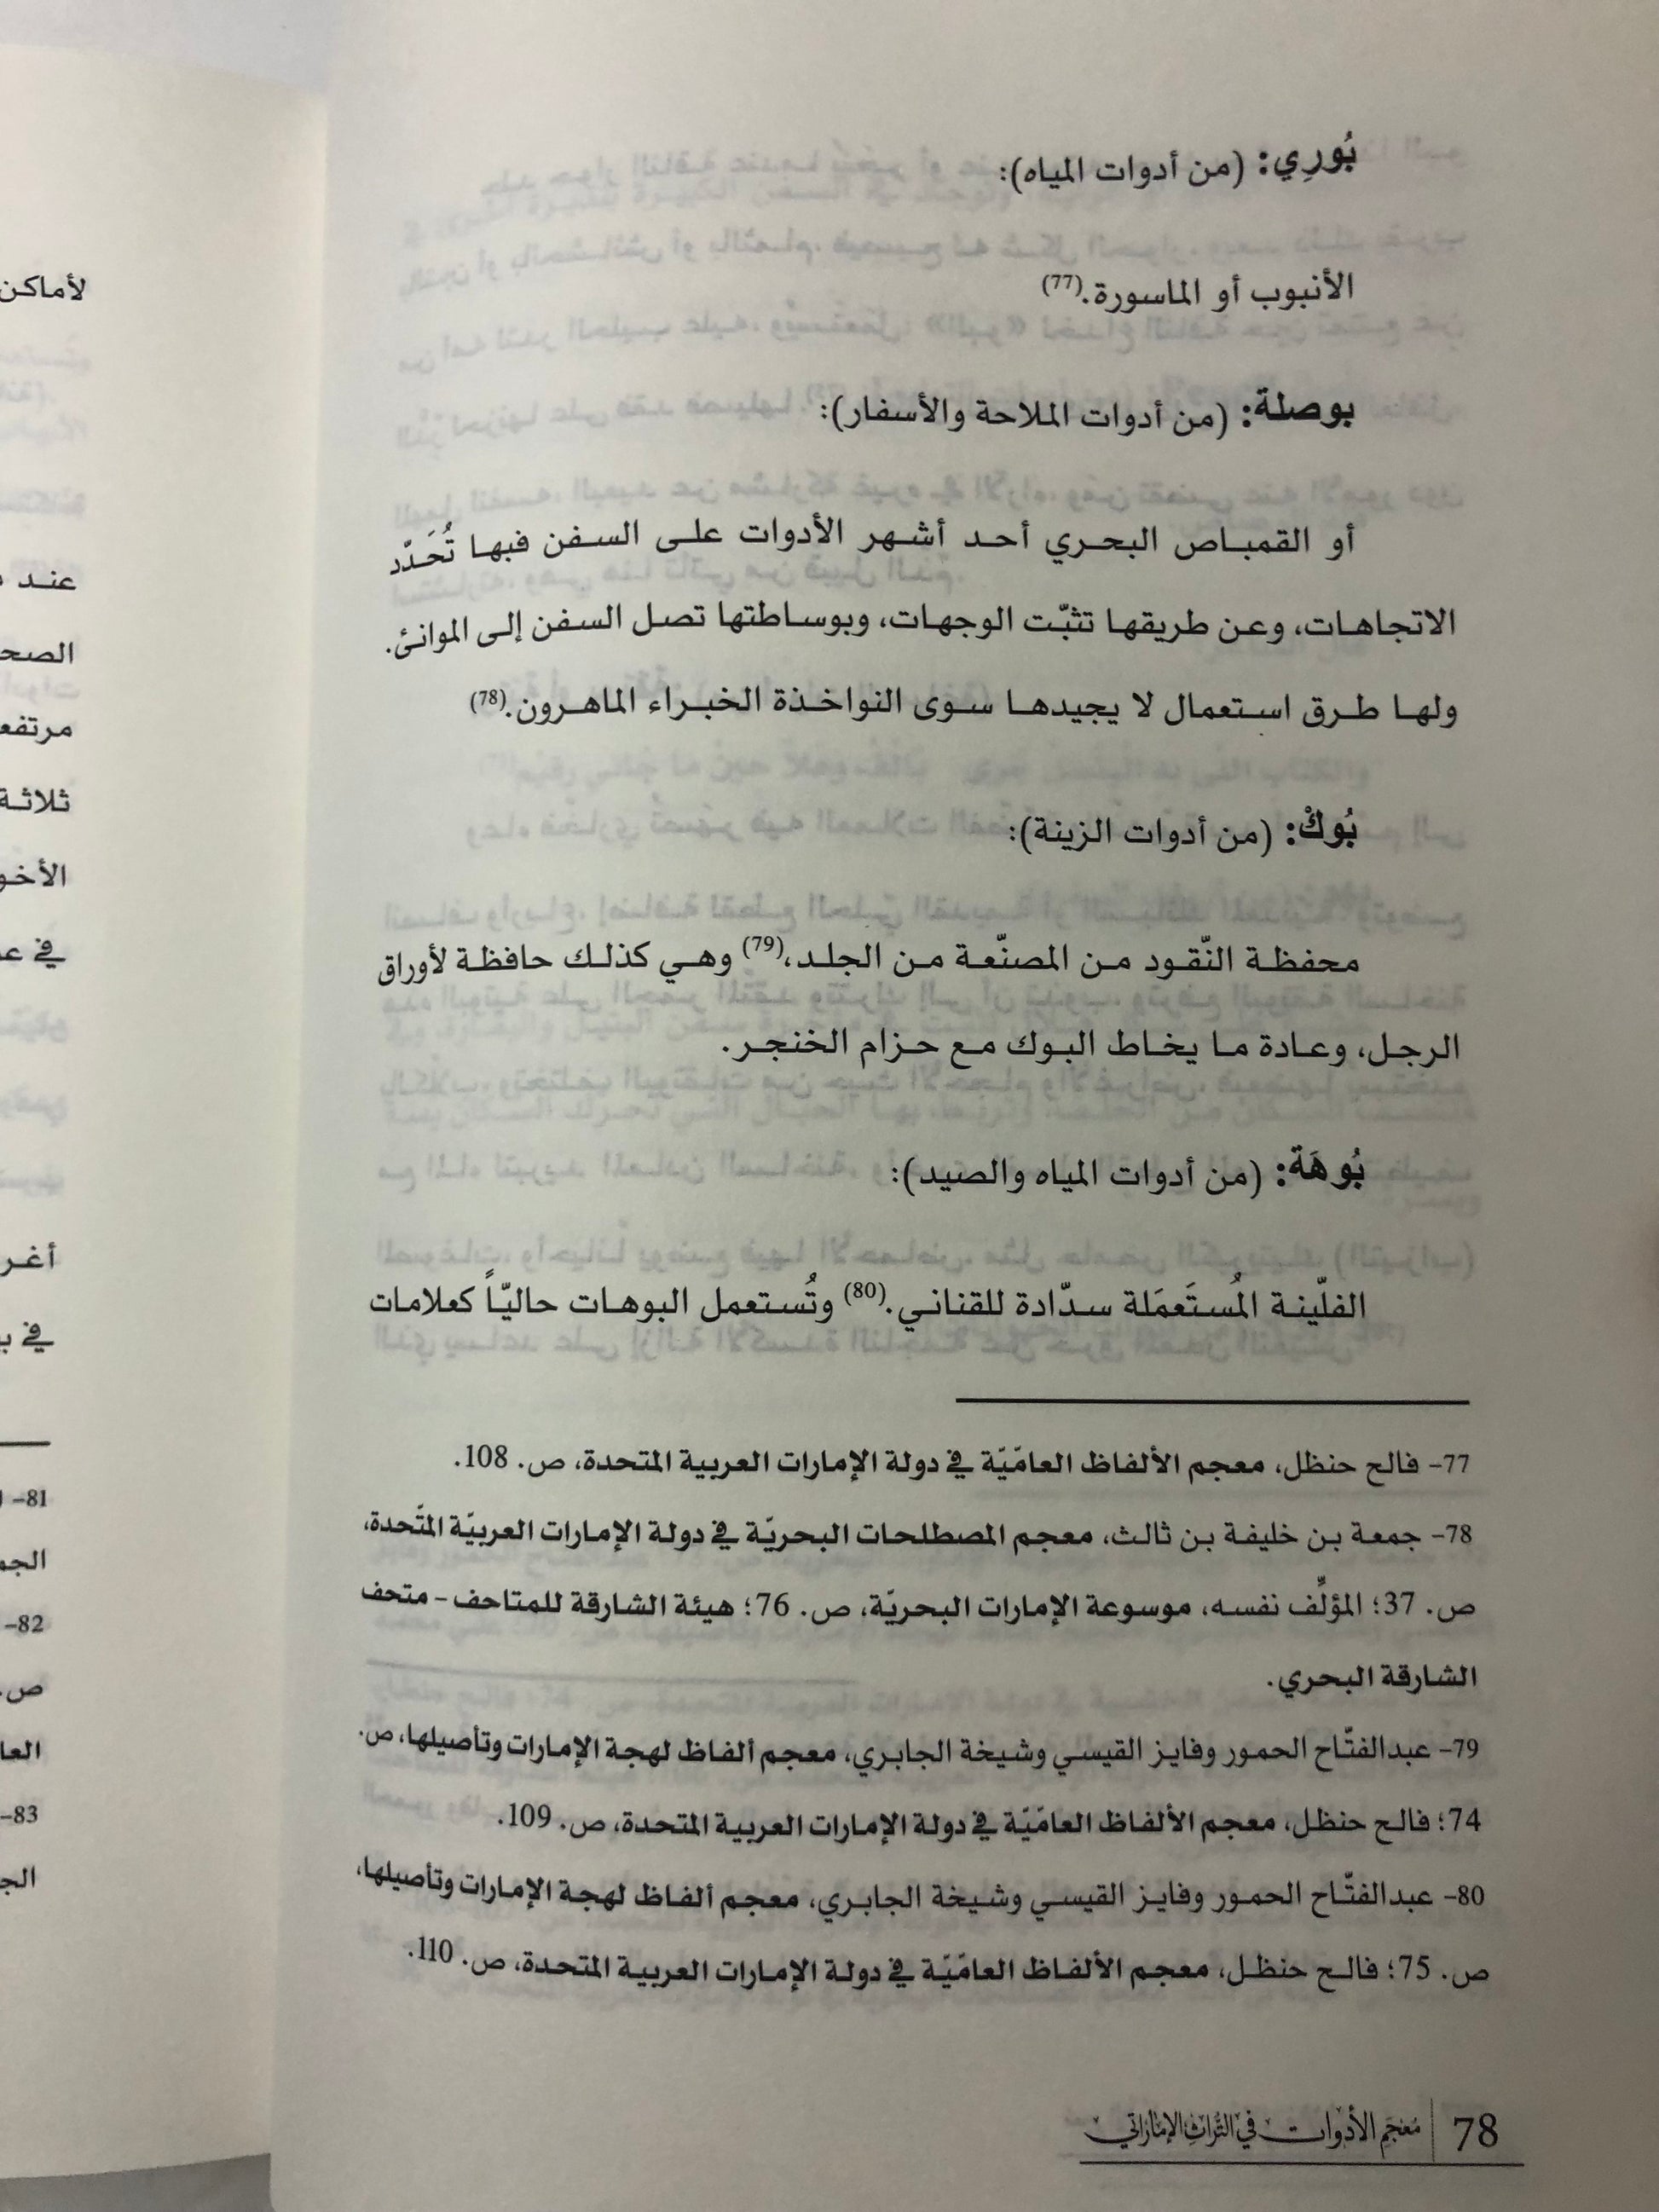 بُورِي: (من أدوات المياه):
الأنبوب أو الماسورة.(77)
بوصلة: (من أدوات الملاحة والأسفار):
أو القمباص البحري أحد أشهر الأدوات على السفن فبها تُحَدّد
الاتجاهات، وعن طريقها تثبّت الوجهات، وبوساطتها تصل السفن إلى الموانئ.
ولها طرق استعمال لا يجيدها سوى النواخذة الخبراء الماهرون.(78)
بُوكْ: (من أدوات الزينة):
محفظة النّقود من المصنّعة من الجلد،(79) وهي كذلك حافظة لأوراق
الرجل، وعادة ما يخاط البوك مع حزام الخنجر.
بُوهَة: (من أدوات المياه والصيد):
الفلّينة المُستَعمَلة سدّادة للقناني.(80) وتُستعمل البوهات حاليّاً كعلامات
77- فالح حنظل، معجم الألفاظ العامّيّة في دولة الإمارات العربية المتحدة، ص. 108.
78- جمعة بن خليفة بن ثالث، معجم المصطلحات البحريّة في دولة الإمارات العربيّة المتّحدة،
ص. 37؛ المؤلِّف نفسه، موسوعة الإمارات البحريّة، ص. 76؛ هيئة الشارقة للمتاحف – متحف
الشارقة البحري.
79- عبدالفتّاح الحمور وفايز القيسي وشيخة الجابري، معجم ألفاظ لهجة الإمارات وتأصيلها، ص.
74؛ فالح حنظل، معجم الألفاظ العامّيّة في دولة الإمارات العربية المتحدة، ص. 109.
80- عبدالفتّاح الحمور وفايز القيسي وشيخة الجابري، معجم ألفاظ لهجة الإمارات وتأصيلها،
ص. 75؛ فالح حنظل، معجم الألفاظ العامّيّة في دولة الإمارات العربية المتحدة، ص. 110.
78 | مُعجَم الأدوات في التُّراث الإماراتي
لأماكن
عند
مرتفعة
ثلاثة
في
أغر
في
81-
82-
ص.
83-